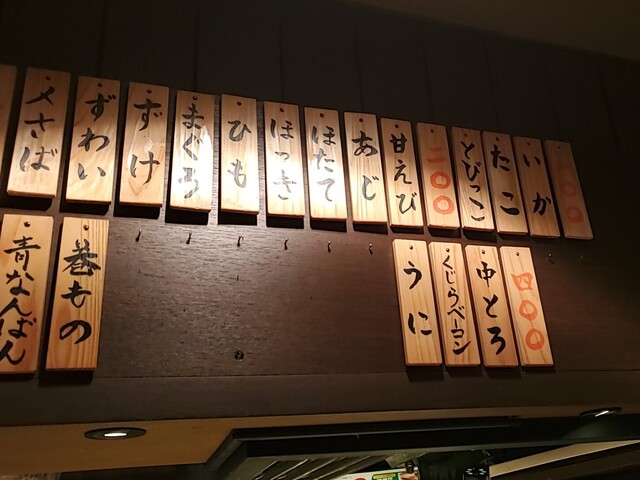 〇〇
いか
たこ
とびっこ
二〇〇
甘えび
あじ
ほたて
ほっき
ひも
まぐろ
ずけ
ずわい
〆さば
四〇〇
中とろ
くじらベーコン
うに
巻もの
青なんばん